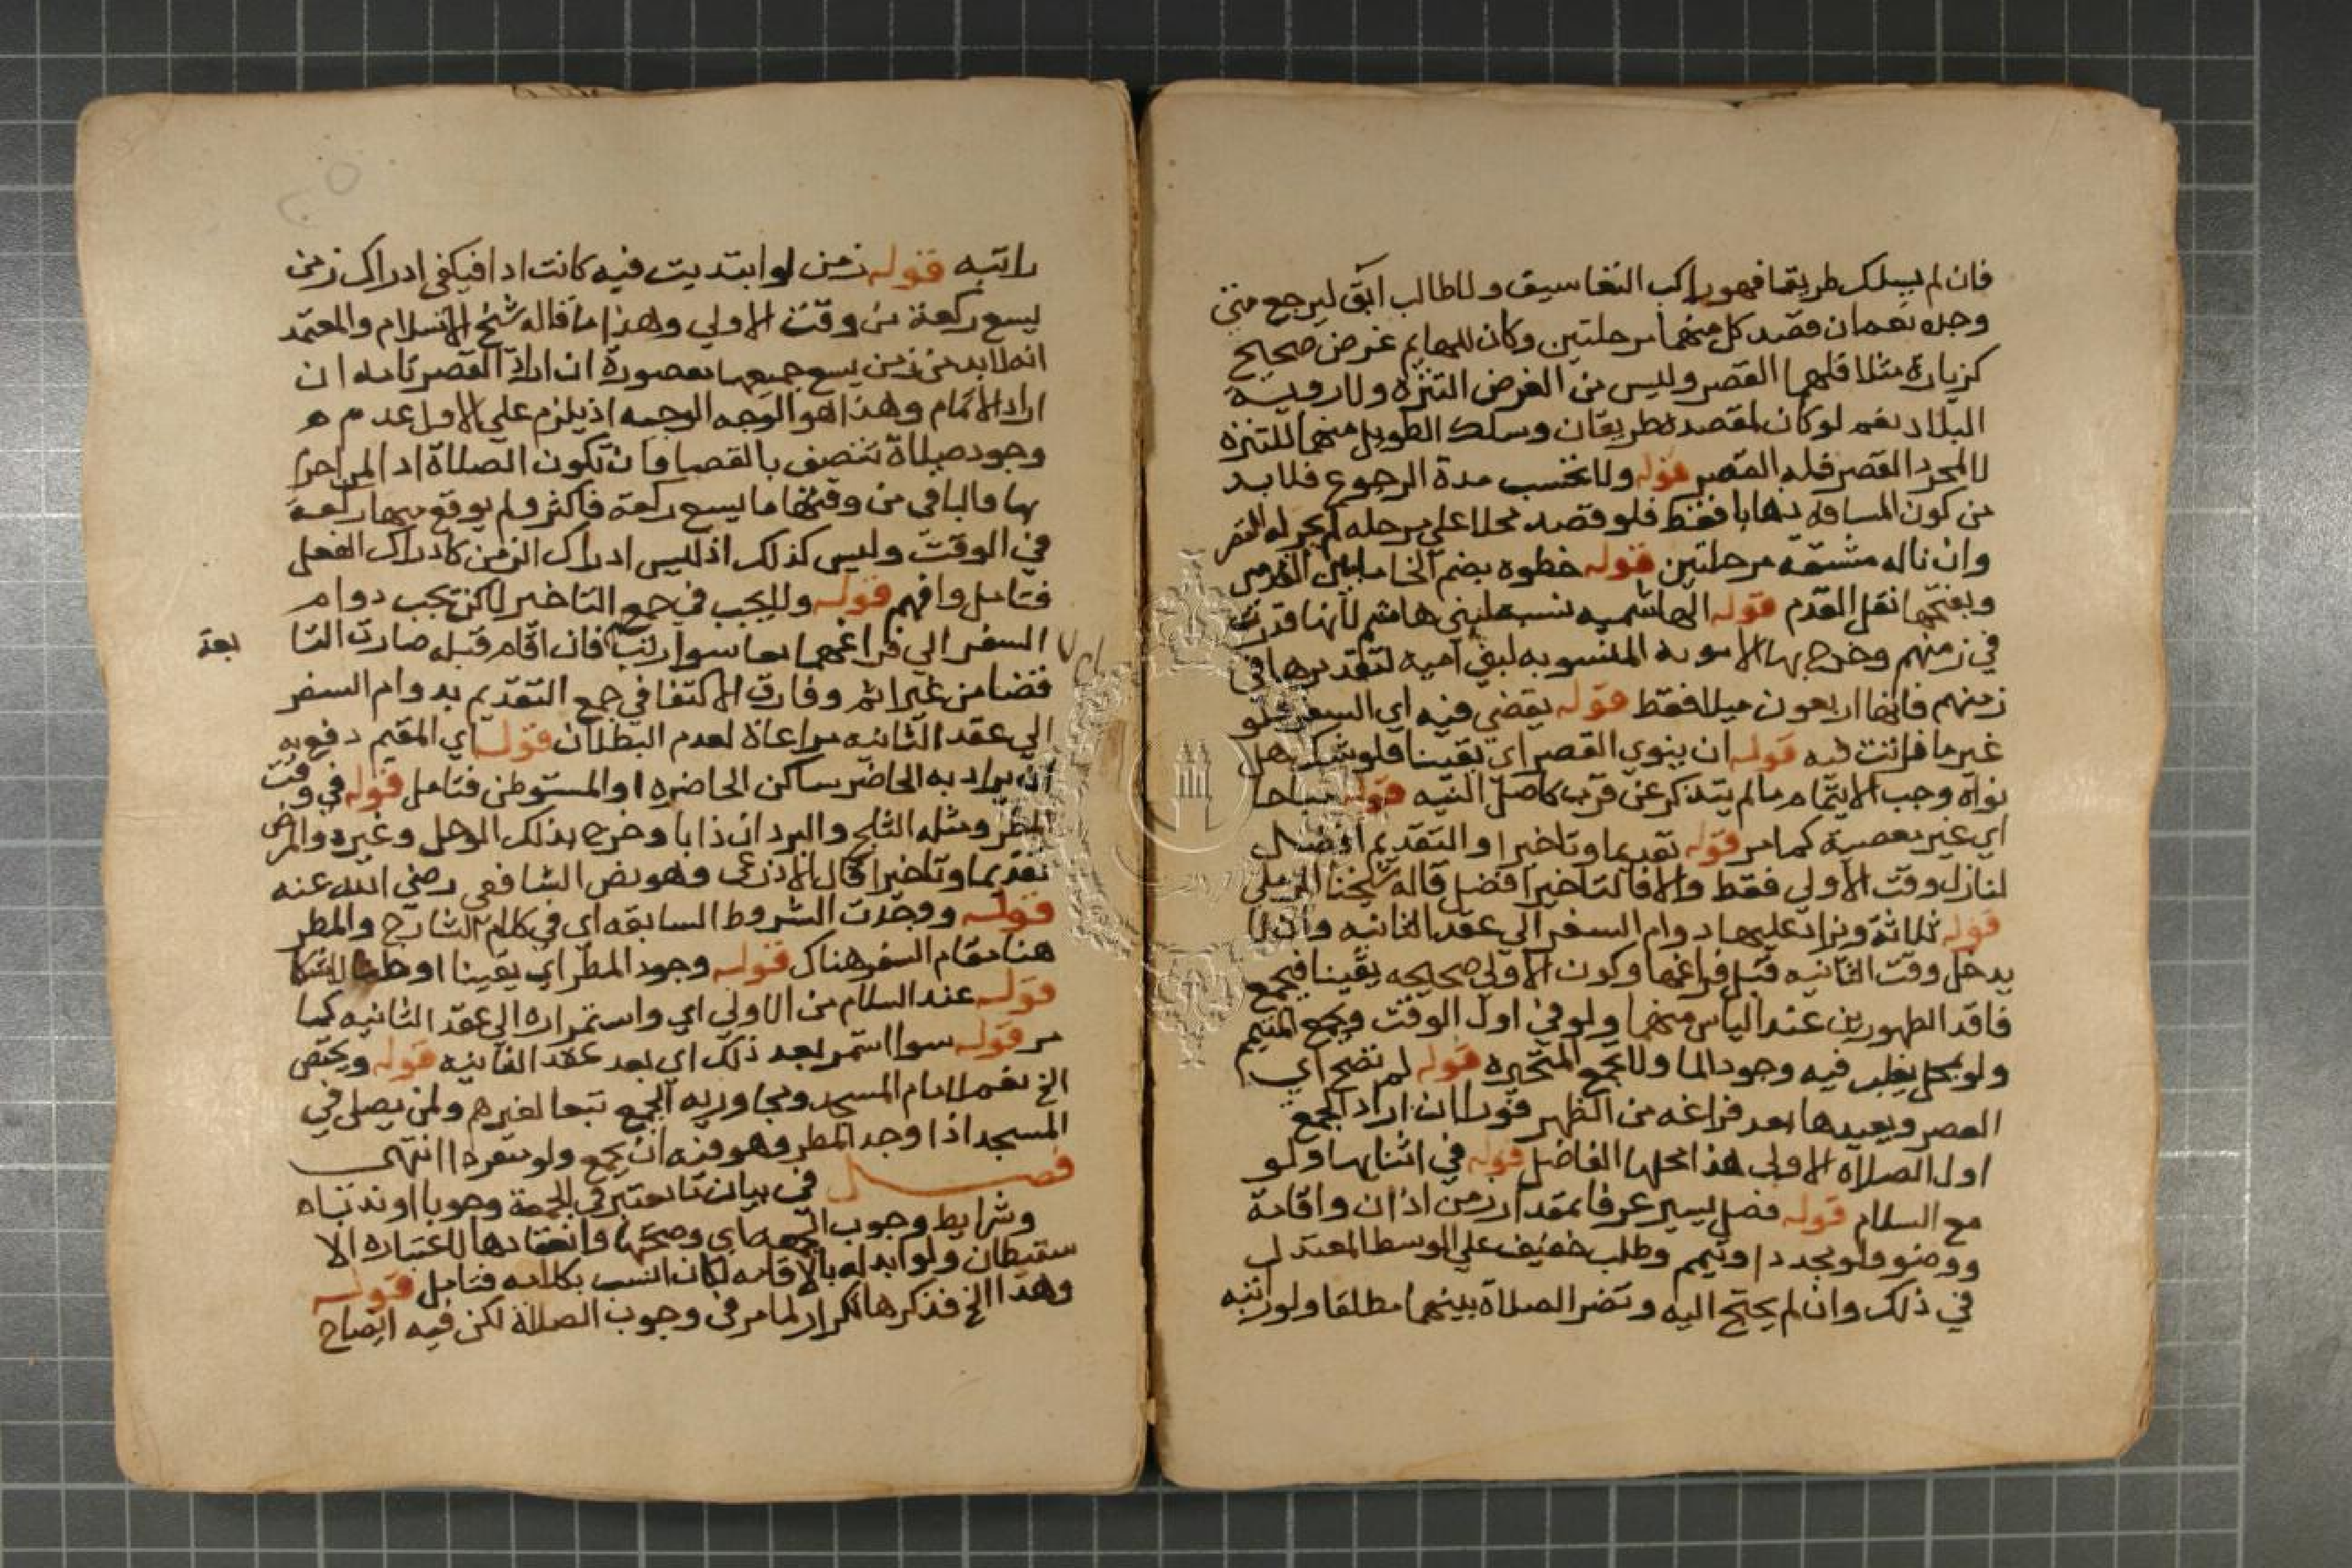 فان لم يسلك طريقا فهو راكب التعاسيف ولا طالب آبق ليرجع متى
وجده نعم ان قصد كل منهما مرحلتين وكان للهايم غرض صحيح
كزيارة مثلا فلهما القصر وليس من الغرض التنزه ولا روية
البلاد نعم لو كان لمقصده طريقان وسلك الطويل منهما للتنزه
لا لمجرد القصر فله القصر قوله ولا تحتسب مدة الرجوع فلا بد
من كون المسافه ذهابا فقط فلو قصد محلا علي مرحله لم يجز له القصر
وان ناله مشقه مرحلتين قوله خطوه بضم الخا ما بين القدمين
وبفتحها نقل القدم قوله الهاشميه نسبة لبني هاشم لانها قدرت
في زمنهم وخرج بها الامويه المنسوبه لبني اميه لتقديرها في
زمنهم فانها اربعون ميلا فقط قوله يقضي فيه اي السفر ولو
غير ما فاتت فيه قوله ان ينوي القصر اي يقينا فلو شك هل
نواه وجب الاتمام ما لم يتذكر عن قرب كاصل النيه قوله مباحا
اي غير معصية كما مر قوله تقديما وتاخيرا والتقديم افضل
لنازل وقت الاولي فقط والا فالتاخير افضل قاله شيخنا الرملي
قوله ثلاثة وزاد عليها دوام السفر الي عقد الثانيه وان لا
يدخل وقت الثانيه قبل فراغها وكون الاولي صحيحه يقينا فيجمع
فاقد الطهورين عند الياس منهما ولو في اول الوقت ويجمع المتيمم
ولو بمحل يغلب فيه وجود الما ولا تجمع المتحيره قوله لم تصح اي
العصر ويعيدها بعد فراغه من الظهر فورا ان اراد الجمع
اول الصلاه الاولي هذا محلها الفاضل قوله في اثنايها ولو
مع السلام قوله فصل يسير عرفا بمقدار زمن اذان واقامة
ووضو ولو مجددا وتيمم وطلب خفيف علي الوسط المعتدل
في ذلك وان لم يحتج اليه وتضر الصلاة بينهما مطلقا ولو راتبه
راتبه قوله زمن لو ابتديت فيه كانت ادا فيكفي ادراك زمن
يسع ركعة من وقت الاولي وهذا ما قاله شيخ الاسلام والمعتمد
انه لا بد من زمن يسع جميعها مقصورة ان اراد القصر تامه ان
اراد الاتمام وهذا هو الوجه الوجيه اذ يلزم علي الاول عدم
وجود صلاة تتصف بالقضا وان تكون الصلاة ادا لمن احرم
بها والباقي من وقتها ما يسع ركعة فاكثر ولم يوقع منها ركعة
في الوقت وليس كذلك اذ ليس ادراك الزمن كادراك الفعل
فتامل وافهم قوله ولا يجب في جمع التاخير لاكن يجب دوام
السفر الي فراغهما معا سوا رتب فان اقام قبله صارت التا
بعة
قضا من غير اثم وفارق الاكتفا في جمع التقديم بدوام السفر
الي عقد الثانيه مراعاة لعدم البطلان قوله اي المقيم دفع به
ان يراد به الحاضر ساكن الحاضره او المستوطن فتامل قوله في وقت
المطر ومثله الثلج والبرد ان ذابا وخرج بذلك الوحل وغيره والمرض
تقديما وتاخيرا قال الاذرعي وهو نص الشافعي رضي الله عنه
قوله ووجدت الشروط السابقه اي في كلام الشارح والمطر
هنا مقام السفر هناك قوله وجود المطر اي يقينا او ظنا لا شكا
قوله عند السلام من الاولي اي واستمراره الي عقد الثانيه كما
مر قوله سوا استمر بعد ذلك اي بعد عقد الثانيه قوله ويختص
الخ نعم لامام المسجد ومجاوريه الجمع تبعا لغيرهم ولمن يصلي في
المسجد اذا وجد المطر وهو فيه ان يجمع ولو منفردا انتهي
فصل في بيان ما يعتبر في الجمعة وجوبا او ندبا
وشرايط وجوب الجمعه اي وصحتها وانعقادها لاعتباره الا
ستيطان ولو ابدله بالاقامه لكان انسب بكلامه فتامل قوله
وهذا الخ فذكرها تكرار لما مر في وجوب الصلاة لكن فيه ايضاح